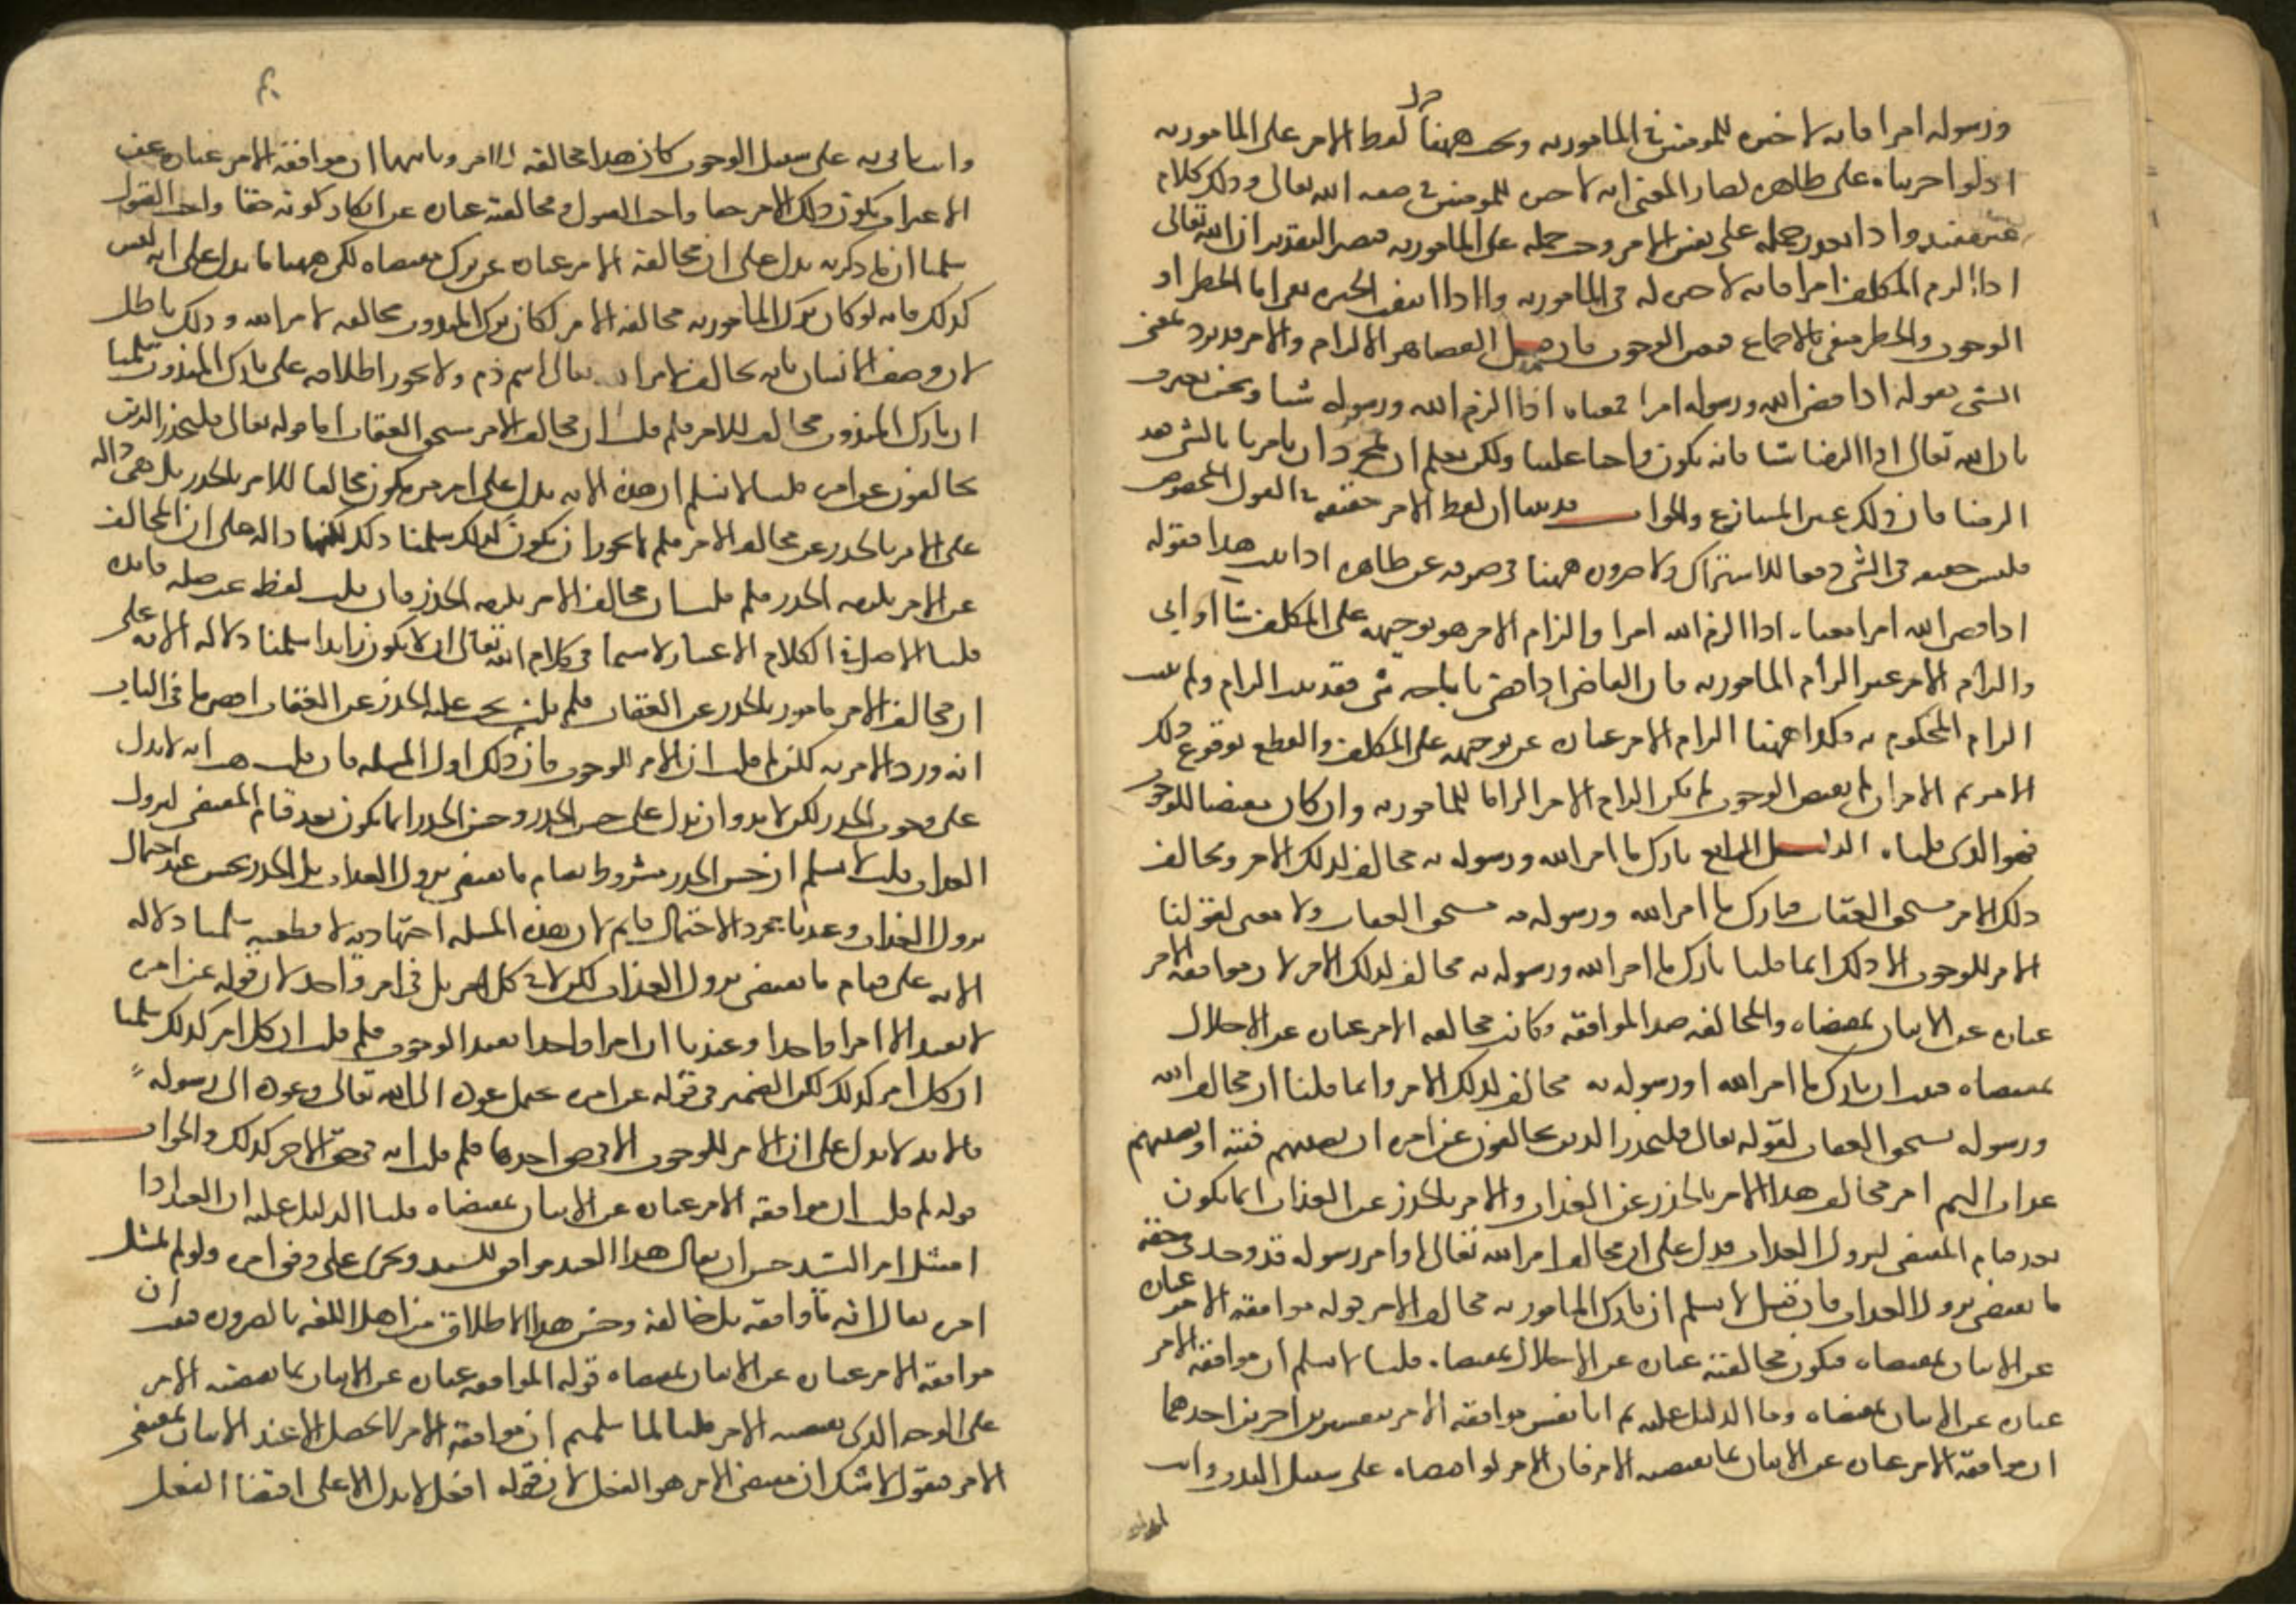 ورسوله امرا فانه لا خيره للمومنين في المامور به وبحب ههنا حمل لفظ الامر على المامور به
اذ لو اجريناه على ظاهره لصار المعنى انه لا خيره للمومنين في صفه الله تعالى وذلك كلام
غير مفيد واذا تعذر حمله على نفس الامر وجب حمله على المامور به فيصير التقدير ان الله تعالى
اذا الزم المكلف امرا فانه لا خيره له في المامور به واذا انتفت الخيره بقي اما الحظر او
الوجوب والحظر منفي بالاجماع فتعين الوجوب فان قيل القضا هو الالزام والامر قد يرد بمعنى
الشي فقوله اذا قضى الله ورسوله امرا معناه اذا الزم الله ورسوله شيا ونحن نعترف
بان الله تعالى اذا الزمنا شيا فانه يكون واجبا علينا ولكن لم قلتم ان بمجرد ان يامرنا بالشي فقد
الزمنا فان ذلك عين المتنازع والجواب قد بينا ان لفظ الامر حقيقة في القول المخصوص
فليس حقيقه في الشي دفعا للاشتراك ولا ضروره ههنا في صرفه عن ظاهره اذا ثبت هذا فقوله
اذا قضى الله امرا معناه اذا الزم الله امرا والزام الامر هو توجيهه على المكلف شا او ابى
والزام الامر غير الزام المامور به فان القاضي اذا قضى باباحه شي فقد ثبت الزام ولم يثبت
الزام المحكوم به فكذا ههنا الزام الامر عباره عن توجيهه على المكلف والقطع بوقوع ذلك
الامر ثم الامر ان لم يقتض الوجوب لم يكن الزام الامر الزاما للمامور به وان كان مقتضيا للوجوب
فهو الذي قلناه الدليل الرابع تارك ما امر الله ورسوله به مخالف لذلك الامر ومخالف
ذلك الامر مستحق العقاب فتارك ما امر الله ورسوله به مستحق العقاب ولا معنى لقولنا
الامر للوجوب الا ذلك انما قلنا تارك ما امر الله ورسوله به مخالف لذلك الامر لان موافقه الامر
عباره عن الاتيان بمقتضاه والمخالفه ضد الموافقه وكانت مخالفه الامر عباره عن الاخلال
بمقتضاه فثبت ان تارك ما امر الله او رسوله به مخالف لذلك الامر وانما قلنا ان مخالف الله
ورسوله يستحق العقاب لقوله تعالى فليحذر الذين يخالفون عن امره ان تصيبهم فتنه او يصيبهم
عذاب اليم امر مخالف هذا الامر بالحذر عن العذاب والامر بالحذر عن العذاب انما يكون
بعد قيام المقتضي لنزول العذاب فدل على ان مخالف امر الله تعالى او امر رسوله قد وجد في حقه
ما يقتضي نزول العذاب فان قيل لا نسلم ان تارك المامور به مخالف الامر قوله موافقه الامر عباره
عن الاتيان بمقتضاه فتكون مخالفته عباره عن الاخلال بمقتضاه قلنا لا نسلم ان موافقه الامر
عباره عن الاتيان بمقتضاه وما الدليل عليه ثم انا نفسر موافقه الامر بتفسيرين اخرين احدهما
ان موافقه الامر عباره عن الاتيان بما يقتضيه الامر فان الامر لو اقتضاه على سبيل الندب وانت
وانت تاتي به على سبيل الوجوب كان هذا مخالفه للامر وثانيهما ان موافقه الامر عباره عن
الاعتراف بكون ذلك الامر حقا واجب القبول ومخالفته عباره عن انكار كونه حقا واجب القبول
سلمنا ان ما ذكرته يدل على ان مخالفه الامر عباره عن ترك مقتضاه لكن ههنا ما يدل على انه ليس
كذلك فانه لو كان ترك المامور به مخالفه الامر لكان ترك المندوب مخالفه لامر الله وذلك باطل
لان وصف الانسان بانه مخالف لامر الله تعالى اسم ذم ولا يجوز اطلاقه على تارك المندوب سلمنا
ان تارك المندوب مخالف للامر فلم قلت ان مخالف الامر يستحق العقاب اما قوله تعالى فليحذر الذين
يخالفون عن امره قلنا لا نسلم ان هذه الايه تدل على امر من يكون مخالفا للامر بالحذر بل هي داله
على الامر بالحذر عن مخالف الامر فلم لا يجوز ان يكون كذلك سلمنا ذلك لكنها داله على ان المخالف
عن الامر يلزمه الحذر فلم قلت ان مخالف الامر يلزمه الحذر فان قلت لفظه عن صله زائده
قلنا الاصل في الكلام الاعتبار لا سيما في كلام الله تعالى ان لا يكون زايدا سلمنا دلاله الايه على
ان مخالف الامر مامور بالحذر عن العقاب فلم قلت يجب عليه الحذر عن العقاب اقصى ما في الباب
انه ورد الامر به لكن لم قلت ان الامر للوجوب فان ذلك اول المسله فان قلت هب انه لا يدل
على وجوب الحذر لكن لا بد وان يدل على حسن الحذر وحسن الحذر انما يكون بعد قيام المقتضي لنزول
العذاب قلت لا نسلم ان حسن الحذر مشروط بقيام ما يقتضي نزول العذاب بل الحذر يحسن عند احتمال
نزول العذاب وعندنا مجرد الاحتمال قايم لان هذه المسله اجتهاديه لا قطعيه سلمنا دلاله
الايه على قيام ما يقتضي نزول العذاب لكن لا في كل امر بل في امر واحد لان قوله عن امره
لا يفيد الا امرا واحدا وعندنا ان امرا واحدا يفيد الوجوب فلم قلت ان كل امر كذلك سلمنا
ان كل امر كذلك لكن الضمير في قوله عن امره يحتمل عوده الى الله تعالى وعوده الى رسوله
فالايه لا تدل على ان الامر للوجوب الا في حق احدهما فلم قلت انه في حق الاخر كذلك والجواب
قوله لم قلت ان موافقه الامر عباره عن الاتيان بمقتضاه قلنا الدليل عليه ان العبد اذا
امتثل امر السيد حسن ان يقال هذا العبد موافق للسيد ويجري على وفق امره ولو لم يمتثل
امره يقال انه ما وافقه بل خالفه وحسن هذا الاطلاق من اهل اللغه بالضروره فثبت ان
موافقه الامر عباره عن الاتيان بمقتضاه قوله الموافقه عباره عن الاتيان بما يقتضيه الامر
على الوجه الذي يقتضيه الامر قلنا لما سلمتم ان موافقه الامر لا تحصل الا عند الاتيان بمقتضى
الامر فنقول لا شك ان مقتضى الامر هو الفعل لان قوله افعل لا يدل الا على اقتضا الفعل